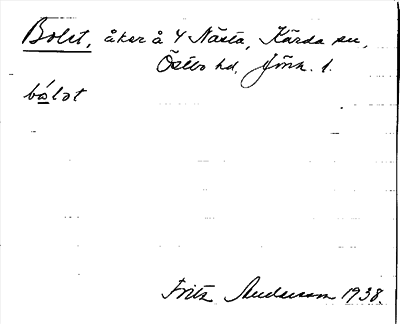 Bolet, åker å 4 Nästa, Kärda sn,
Östbo hd, Jönk. l.
bólət
Fritz Anderson 1938.